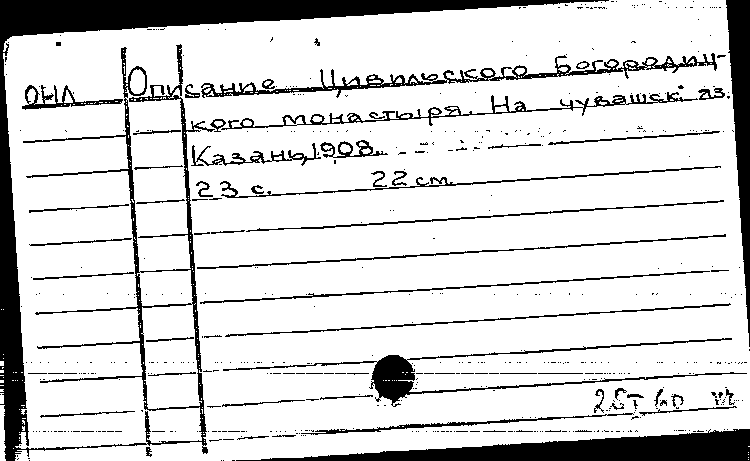 ОНЛ Описание Цивильского Богородиц-
кого монастыря. На чувашск. яз.
Казань, 1908.
23 с. 22 см.